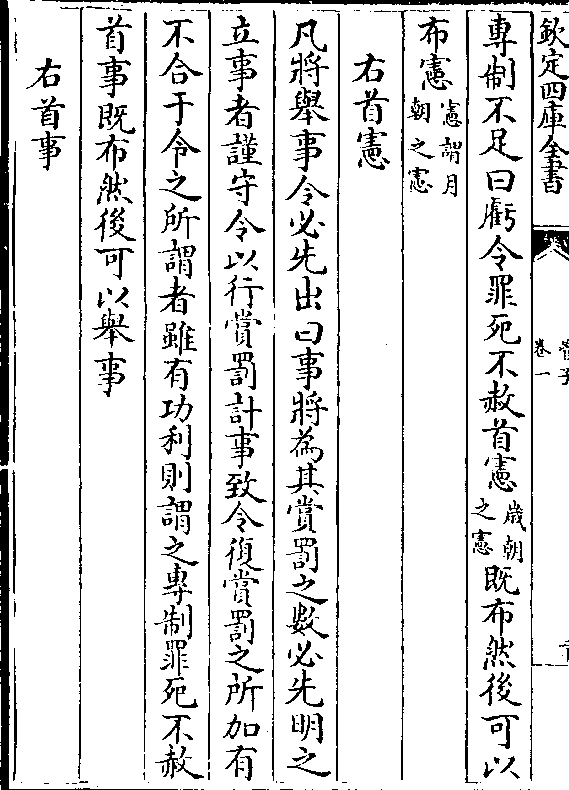 欽定四庫全書
管子
卷一
專制不足曰虧令罪死不赦首憲歲朝之憲既布然後可以
布憲憲謂月朝之憲
右首憲
凡將舉事令必先出曰事將為其賞罰之數必先明之
立事者謹守令以行賞罰計事致令復賞罰之所加有
不合于令之所謂者雖有功利則謂之專制罪死不赦
首事既布然後可以舉事
右首事